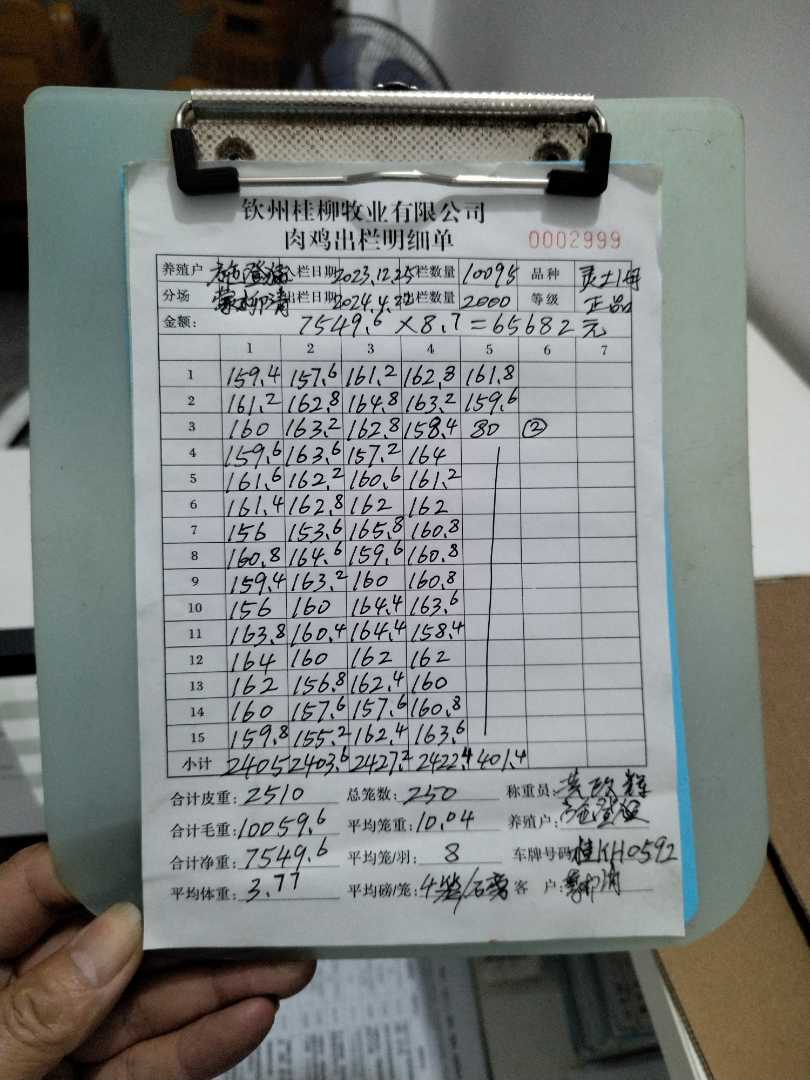 钦州桂柳牧业有限公司
肉鸡出栏明细单 0002999
养殖户 入栏日期 2023.12.25 栏数量 10095 品种 灵土1母
分场 出栏日期 2024.4.22 出栏数量 2000 等级 正品
金额: 7549.6×8.7=65682元
1 2 3 4 5 6 7
1 159.4 157.6 161.2 162.8 161.8
2 161.2 162.8 164.8 163.2 159.6
3 160 163.2 162.8 158.4 80 ②
4 159.6 163.6 157.2 164
5 161.6 162.2 160.6 161.2
6 161.4 162.8 162 162
7 156 153.6 165.8 160.8
8 160.8 164.6 159.6 160.8
9 159.4 163.2 160 160.8
10 156 160 164.4 163.6
11 163.8 160.4 164.4 158.4
12 164 160 162 162
13 162 156.8 162.4 160
14 160 157.6 157.6 160.8
15 159.8 155.2 162.4 163.6
小计 2405 2403.6 2427.2 2422.4 401.4
合计皮重: 2510 总笼数: 250 称重员:
合计毛重: 10059.6 平均笼重: 10.04 养殖户:
合计净重: 7549.6 平均笼/羽: 8 车牌号码 桂KH0592
平均体重: 3.77 平均磅/笼: 客 户: